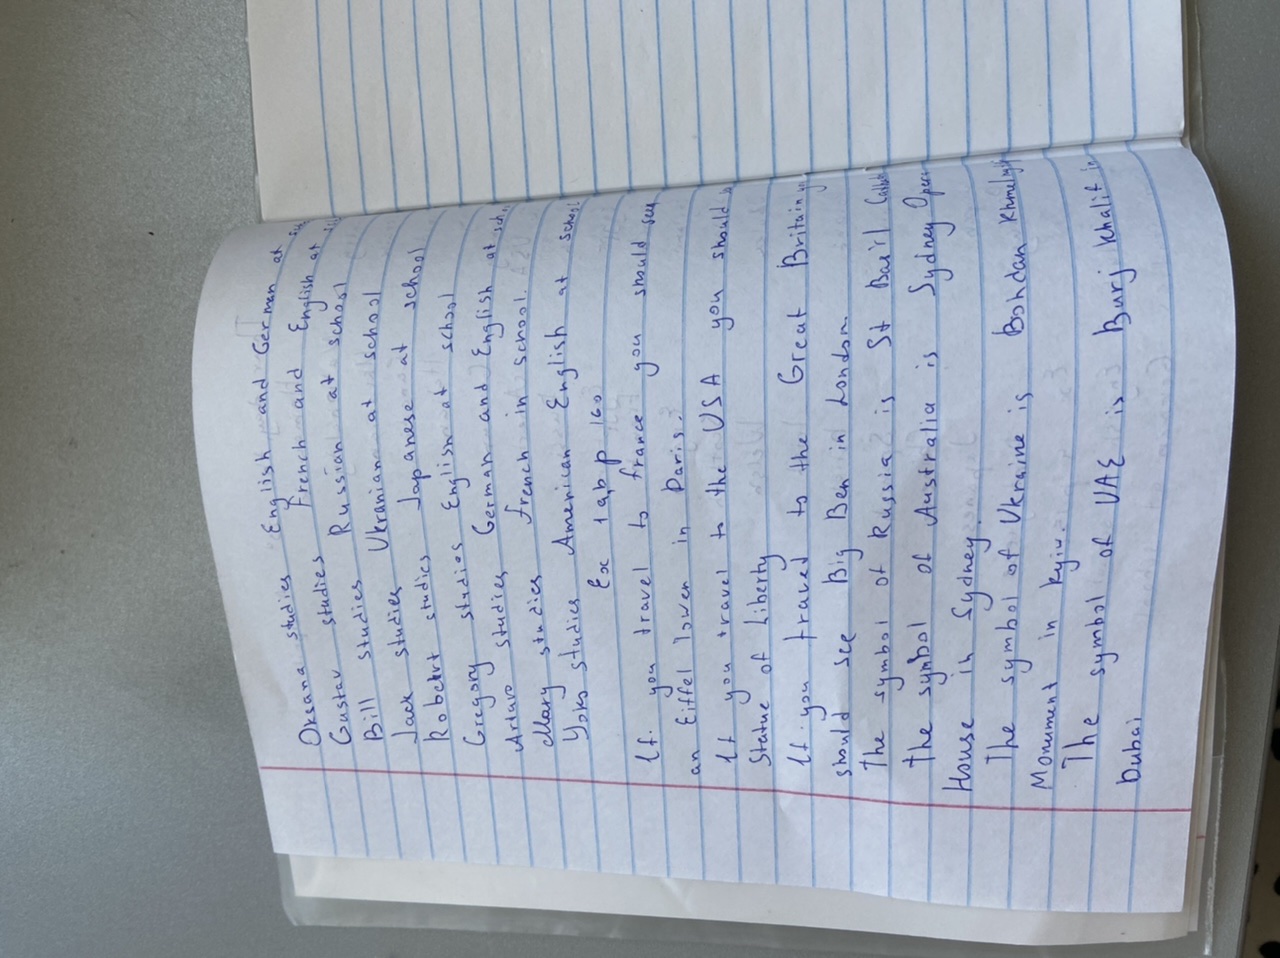 Oksana studies English and German at
Gustav studies French and English at
Bill studies Russian at school
Jack studies Ukranian at school
Robert studies Japanese at school
Gregory studies English at school
Arturo studies German and English at sch
Mary studies french in school.
Yoko studies American English at school
Ex 1 a, p 160
If you travel to france you should see
an Eiffel tower in Paris.
If you travel to the USA you should s
Statue of Liberty
If you travel to the Great Britain yo
should see Big Ben in London.
The symbol of Russia is St Basil Cathed
The symbol of Australia is Sydney Opera
House in Sydney.
The symbol of Ukraine is Bohdan Khmelnyts
Monument in kyiv.
The symbol of UAE is Burj khalif in
Dubai